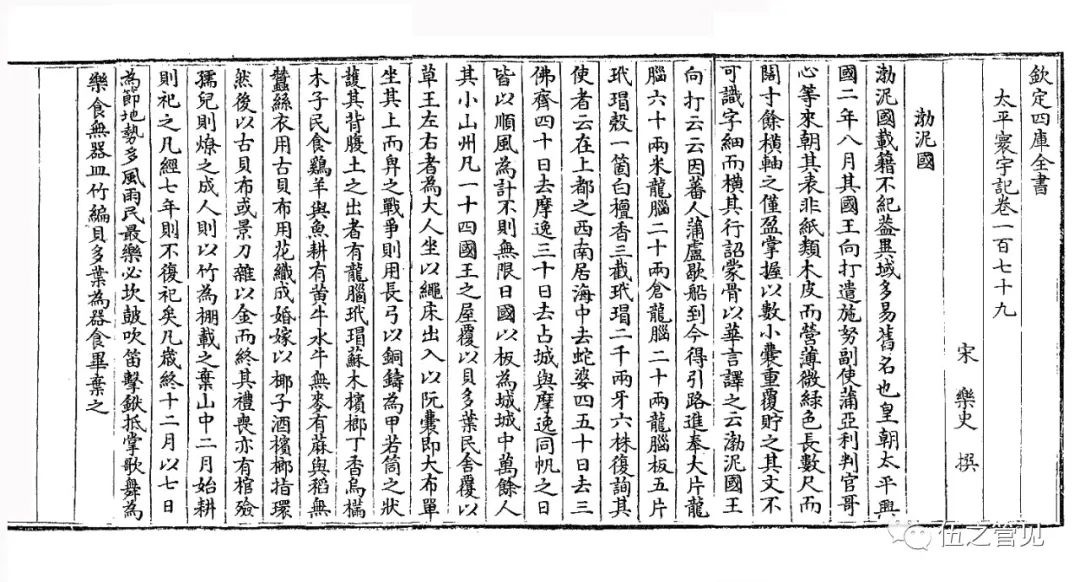 欽定四庫全書
太平寰宇記卷一百七十九
宋 樂史 撰
渤泥國
渤泥國載籍不紀葢異域多易舊名也皇朝太平興
國二年八月其國王向打遣施努副使蒲亞利判官哥
心等來朝其表非紙類木皮而營薄微緑色長數尺而
闊寸餘横軸之僅盈掌握以數小囊重覆貯之其文不
可識字細而横其行詔蒙骨以華言譯之云渤泥國王
向打云云因蕃人蒲盧歇船到今得引路進奉大片龍
腦六十兩米龍腦二十兩倉龍腦二十兩龍腦板五片
玳瑁殼一箇白檀香三截玳瑁二千兩牙六株復詢其
使者云在上都之西南居海中去蛇婆四五十日去三
佛齊四十日去摩逸三十日去占城與摩逸同帆之日
皆以順風為計不則無限日國以板為城城中萬餘人
其小山州凡一十四國王之屋覆以貝多葉民舍覆以
草王左右者為大人坐以繩床出入以阮囊即大布單
坐其上而舁之戰爭則用長弓以銅鑄為甲若筒之狀
護其背腹土之出者有龍腦玳瑁蘇木檳榔丁香烏樠
木子民食鷄羊與魚耕有黄牛水牛無麥有蔴與稻無
蠶絲衣用古貝布用花織成婚嫁以椰子酒檳榔指環
然後以古貝布或景刀雜以金而終其禮喪亦有棺殮
孺兒則燎之成人則以竹為棚載之棄山中二月始耕
則祀之凡經七年則不復祀矣凡嵗終十二月以七日
為節地勢多風雨民最樂必坎鼓吹笛擊鈸抵掌歌舞為
樂食無器皿竹編貝多葉為器食畢棄之
伍之管见